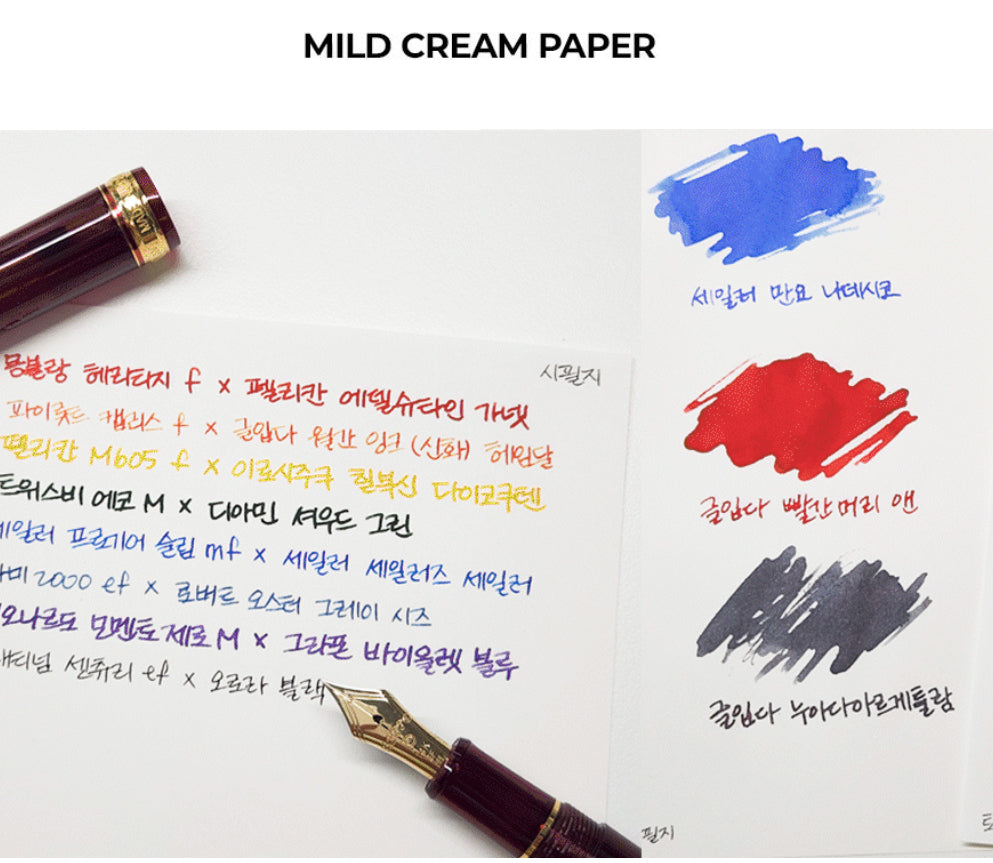 MILD CREAM PAPER
시필지
몽블랑 헤리티지 f x 펠리칸 에델슈타인 가넷
파이롯트 캡리스 f x 글입다 월간 잉크 (신화) 헤임달
펠리칸 M605 f x 이로시주쿠 칠복신 다이코쿠텐
트위스비 에코 M x 디아민 셔우드 그린
세일러 프로기어 슬림 mf x 세일러 세일러즈 세일러
라미 2000 ef x 로버트 오스터 그레이 시즈
오나르도 모멘토 제로 M x 그라폰 바이올렛 블루
래티넘 센츄리 ef x 오로라 블랙
세일러 만요 나데시코
글입다 빨간머리 앤
글입다 누아다아르게틀람
필지